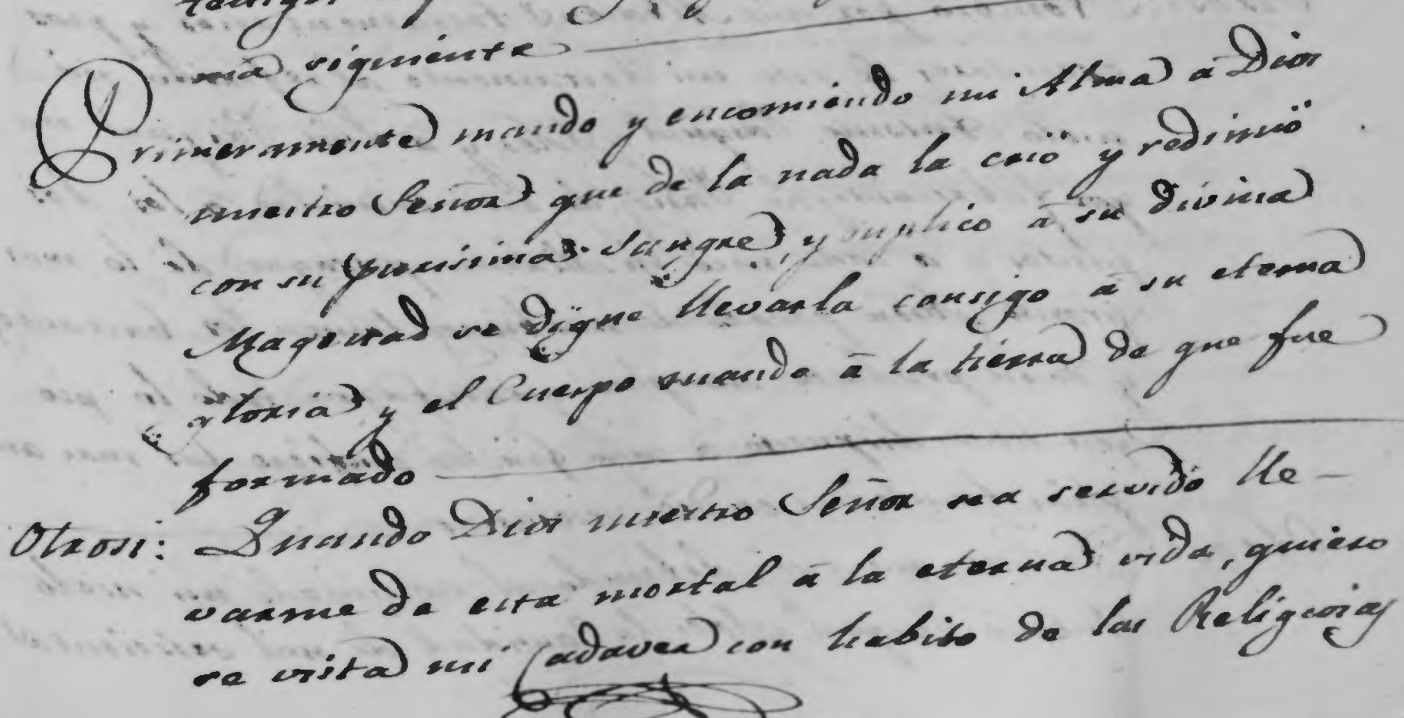 ma siguiente
Primeramente mando y encomiendo mi Alma à Dios
nuestro Señor que de la nada la crió y redimió
con su purissima Sangre, y suplico à su divina
Magestad se digne llevarla consigo à su eterna
gloria y el Cuerpo mando à la tierra de que fue
formado
Otrosi: Quando Dios nuestro Señor sea servido lle-
varme de esta mortal à la eterna vida, quiero
se vista mi Cadaver con habito de las Religiosas